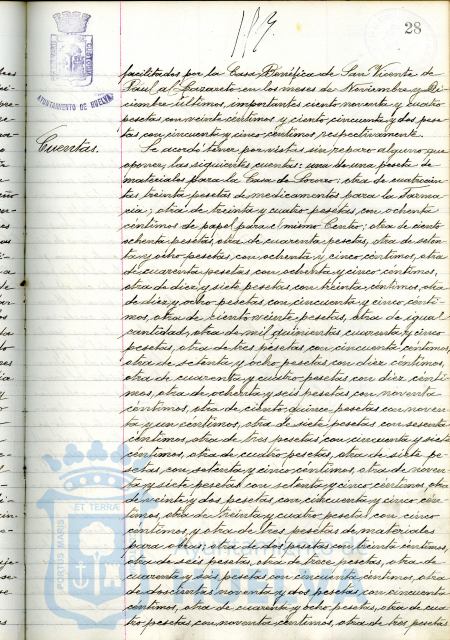 189.
28
AYUNTAMIENTO DE HUELVA
facilitados por la Casa Benéfica de San Vicente de
Paul al Lazareto en los meses de Noviembre y Di-
ciembre últimos, importantes ciento noventa y cuatro
pesetas con veinte céntimos y ciento cincuenta y dos pese-
tas con cincuenta y cinco céntimos respectivamente.
Cuentas.
Se acordó tener por vistas sin reparo alguno que
oponer, las siguientes cuentas: una de una peseta de
materiales para la Casa de Socorro; otra de cuatrocien-
tas treinta pesetas de medicamentos para la Farma-
cia; otra de treinta y cuatro pesetas con ochenta
céntimos de papel para el mismo Centro; otra de ciento
ochenta pesetas, otra de cuarenta pesetas, otra de seten-
ta y ocho pesetas con ochenta y cinco céntimos, otra
de cuarenta pesetas con ochenta y cinco céntimos,
otra de diez y siete pesetas con treinta céntimos, otra
de diez y ocho pesetas con cincuenta y cinco cénti-
mos, otra de ciento veinte pesetas, otra de igual
cantidad, otra de mil quinientas cuarenta y cinco
pesetas, otra de tres pesetas con cincuenta céntimos,
otra de setenta y ocho pesetas con diez céntimos,
otra de cuarenta y cuatro pesetas con diez cénti-
mos, otra de ochenta y seis pesetas con noventa
céntimos, otra de ciento quince pesetas con noven-
ta y un céntimos, otra de siete pesetas con sesenta
céntimos, otra de tres pesetas con cincuenta y siete
céntimos, otra de cuatro pesetas, otra de siete pe-
setas con setenta y cinco céntimos, otra de noven-
ta y siete pesetas con setenta y cinco céntimos, otra
de veinte y dos pesetas con cincuenta y cinco cén-
timos, otra de treinta y cuatro pesetas con cinco
céntimos, y otra de tres pesetas de materiales
para obras; otra de pesetas con treinta céntimos,
otra de seis pesetas, otra de doce pesetas, otra de
cuarenta y seis pesetas con cincuenta céntimos, otra
de doscientas noventa y dos pesetas con cincuenta
céntimos, otra de cuarenta y ocho pesetas, otra de cua-
tro pesetas con noventa céntimos, otra de tres pesetas
PORTUS MARIS ET TERRAE
Ayuntamiento de
HUELVA